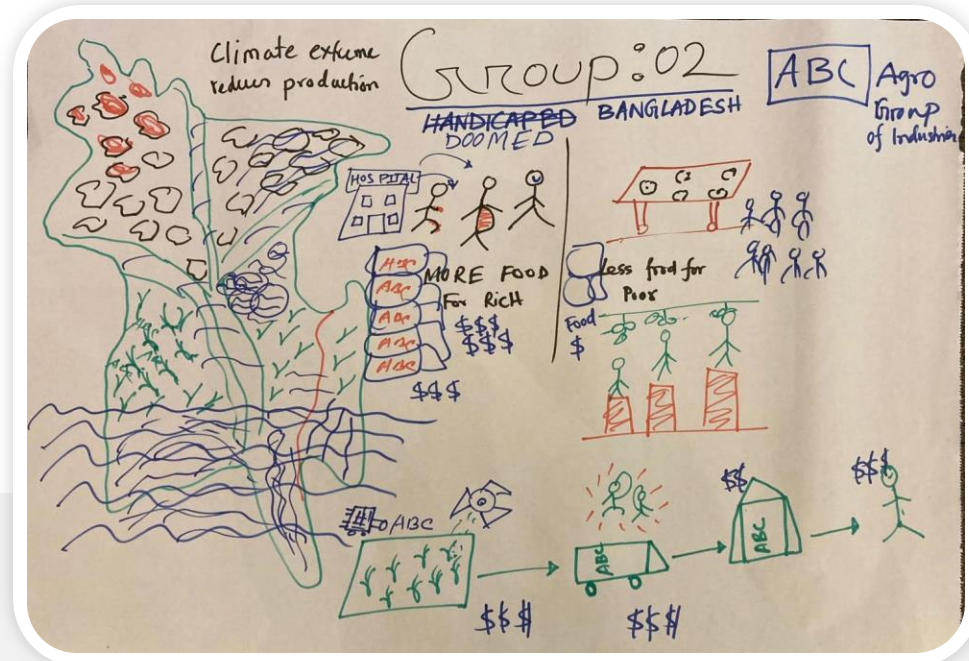 Climate extreme
reduces production
Group:02
HANDICAPPED BANGLADESH
DOOMED
ABC Agro
Group
of Industries
HOSPITAL
ABC
ABC
ABC
ABC
ABC
MORE FOOD
For Rich
$$$
$$$
$$$
Less food for
Poor
Food
$
ABC
$$$
ABC
$$$
$$
ABC
$$$